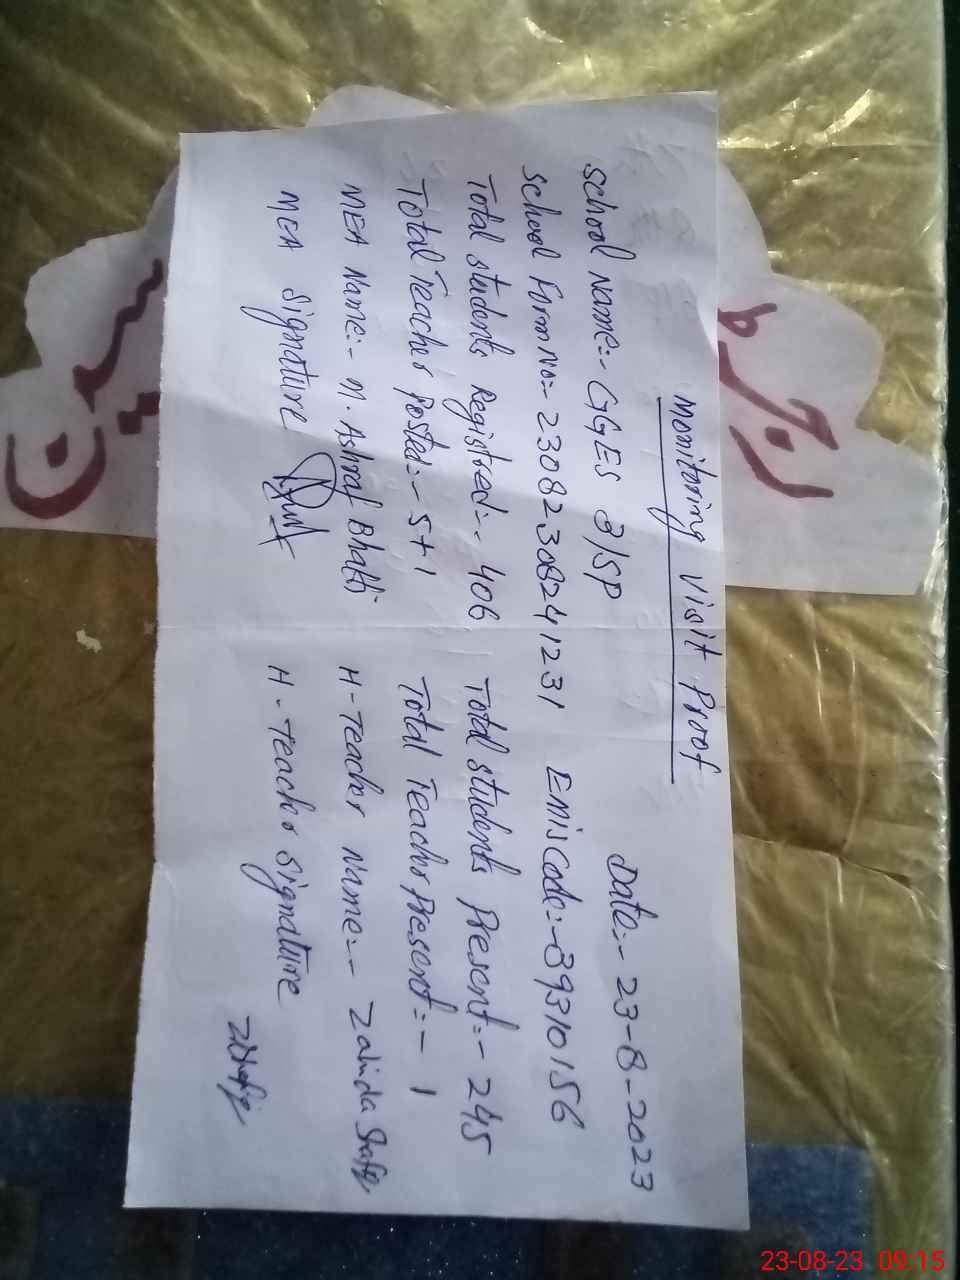 Monitoring Visit Proof
School Name:- GGES 3/SP Date:- 23-8-2023
School Form No:- 23082308241231 Emis Code:- 39310156
Total students Registred:- 406 Total students Present:- 245
Total Teacher Posted:- 5+1 Total Teacher Present:- 1
MEA Name:- M. Ashraf Bhatti H-Teacher Name:- Zahida Shafiq
MEA Signature H-Teacher Signature
ZShafiq
23-08-23 09:15